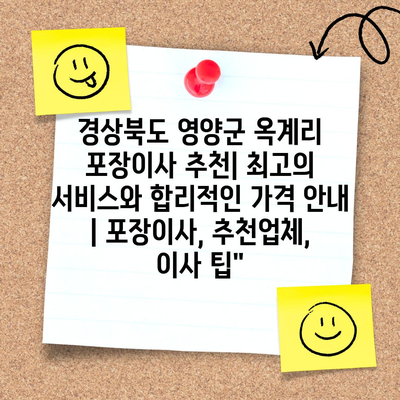 경상북도 영양군 옥계리
포장이사 추천| 최고의
서비스와 합리적인 가격 안내
| 포장이사, 추천업체,
이사 팁"